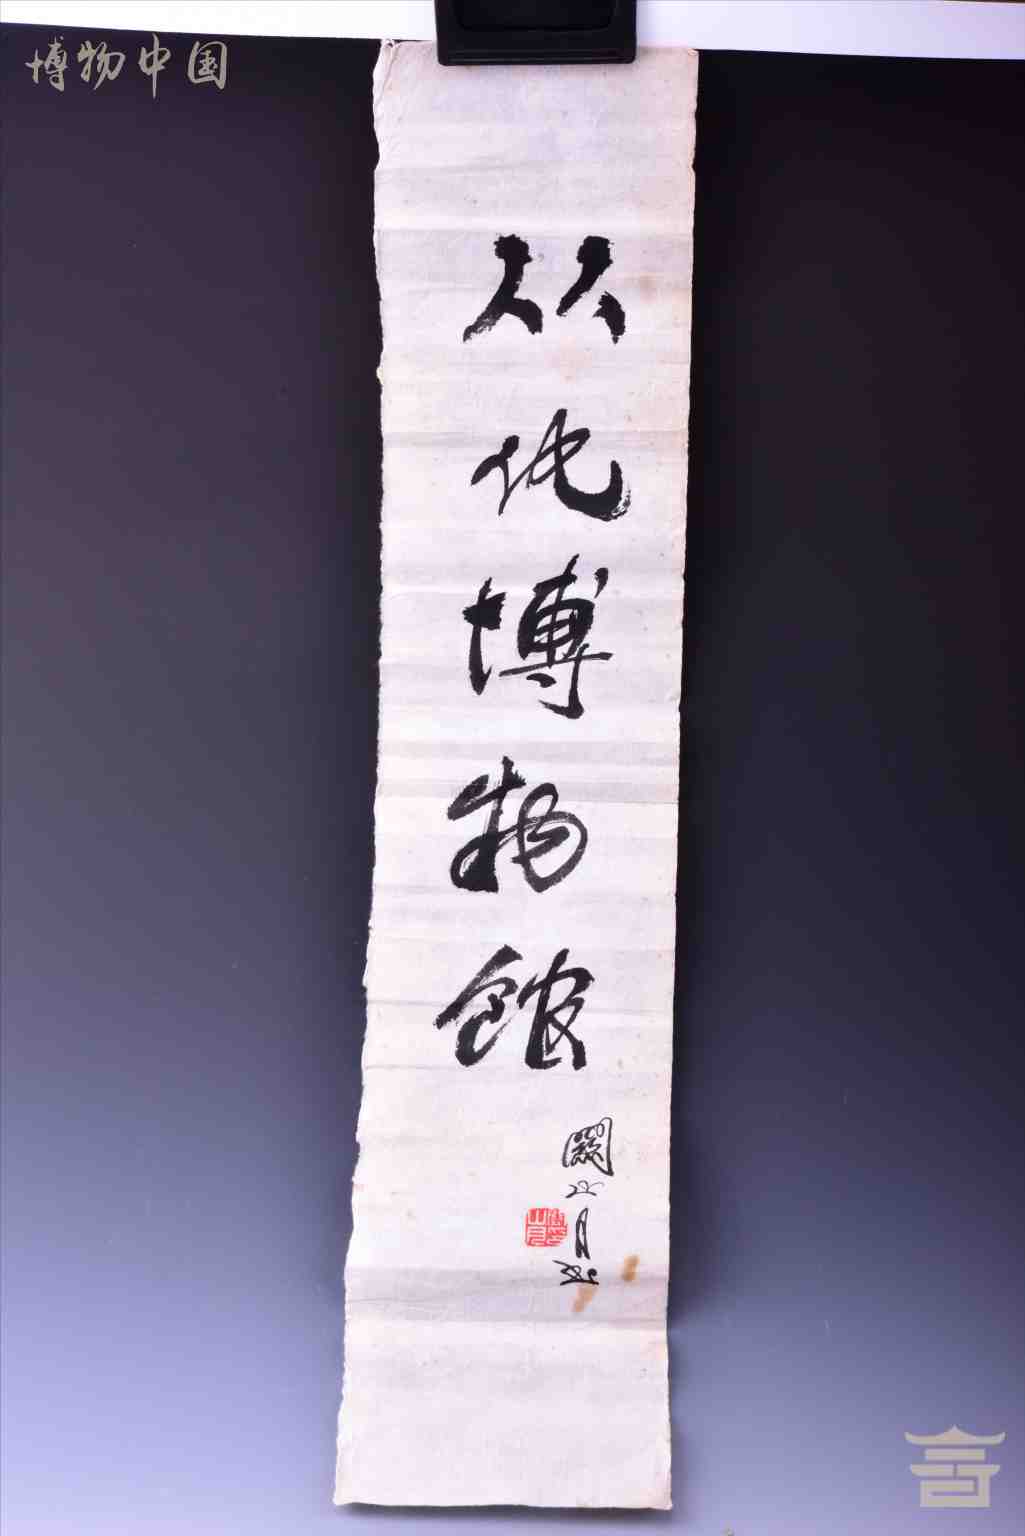 博物中国
从化博物馆
關山月题